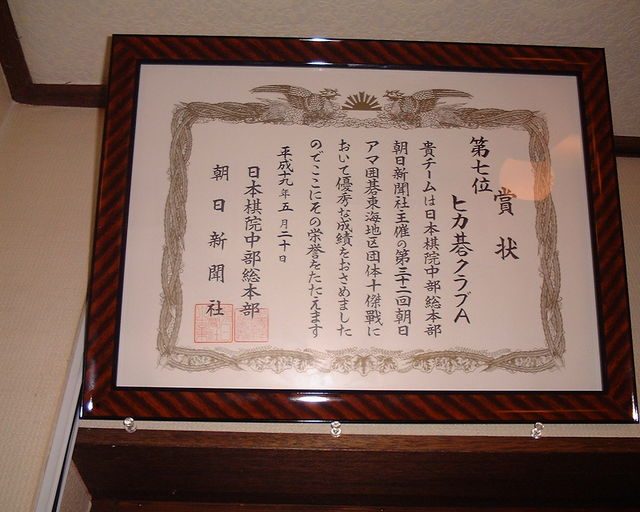 賞状
第七位
ヒカ碁クラブA
貴チームは日本棋院中部総本部
朝日新聞社主催の第三十二回朝日
アマ囲碁東海地区団体十傑戦に
おいて優秀な成績をおさめました
のでここにその栄誉をたたえます
平成十九年五月二十日
日本棋院中部総本部
朝日新聞社